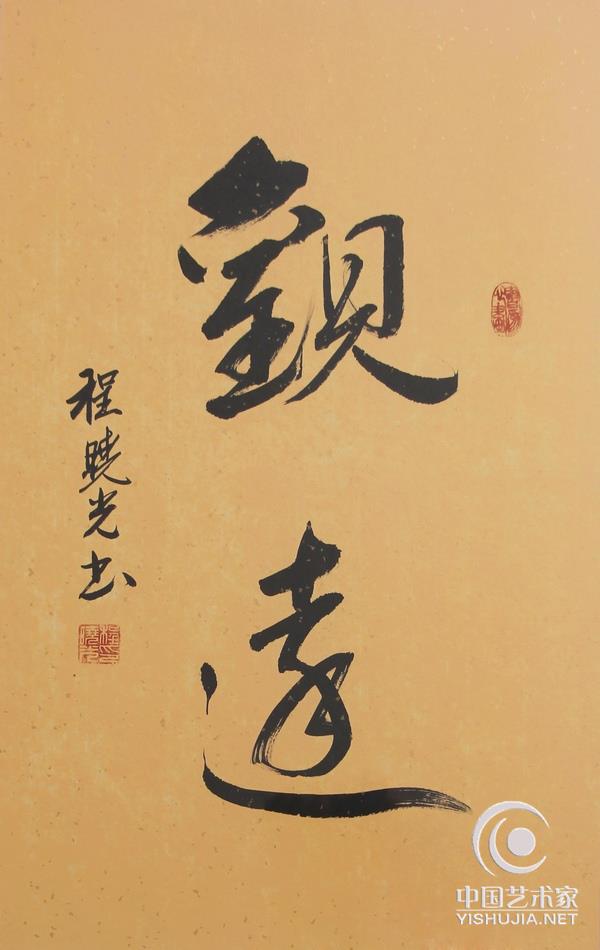 觀遠
程曉光书
中国艺术家
YISHUJIA.NET